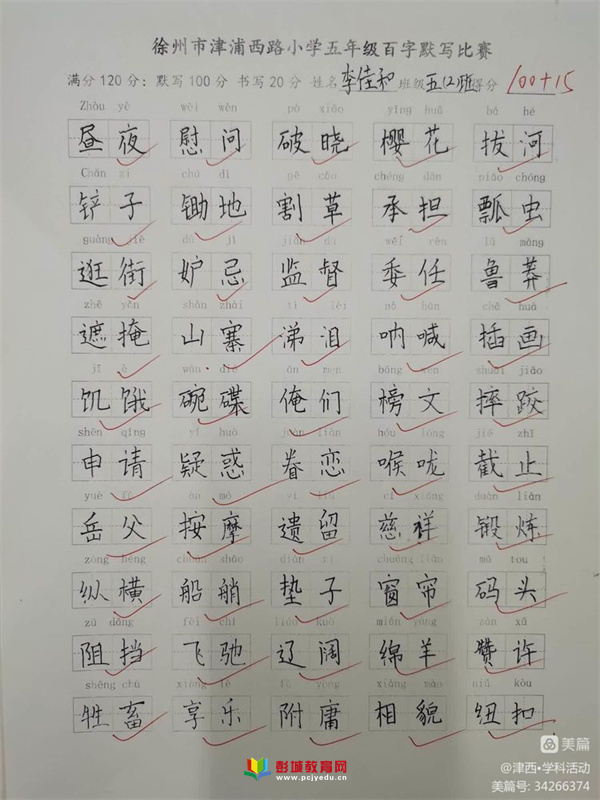 徐州市津浦西路小学五年级百字默写比赛
满分120分：默写100分 书写20分 姓名李佳和班级五(2)班得分 100+15
Zhòu yè wèi wèn pò xiǎo yīng huā bá hé
昼夜 慰问 破晓 樱花 拔河
Chǎn zi chú dì gē cǎo chéng dān piáo chóng
铲子 锄地 割草 承担 瓢虫
guàng jiē dù jì jiān dū wěi rèn lǔ mǎng
逛街 妒忌 监督 委任 鲁莽
zhē yǎn shān zhài tì lèi nà hǎn chā huà
遮掩 山寨 涕泪 呐喊 插画
jī è wǎn dié ǎn men bǎng wén shuāi jiāo
饥饿 碗碟 俺们 榜文 摔跤
shēn qǐng yí huò juàn liàn hóu lóng jié zhǐ
申请 疑惑 眷恋 喉咙 截止
yuè fù àn mó yí liú cí xiáng duàn liàn
岳父 按摩 遗留 慈祥 锻炼
zòng héng chuán shāo diàn zi chuāng lián mǎ tou
纵横 船艄 垫子 窗帘 码头
zǔ dǎng fēi chí liáo kuò mián yáng zàn xǔ
阻挡 飞驰 辽阔 绵羊 赞许
shēng chù xiǎng lè fù yōng xiàng mào niǔ kòu
牲畜 享乐 附庸 相貌 纽扣
彭城教育网
www.pcjyedu.cn
美篇
@津西•学科活动
美篇号: 34266374